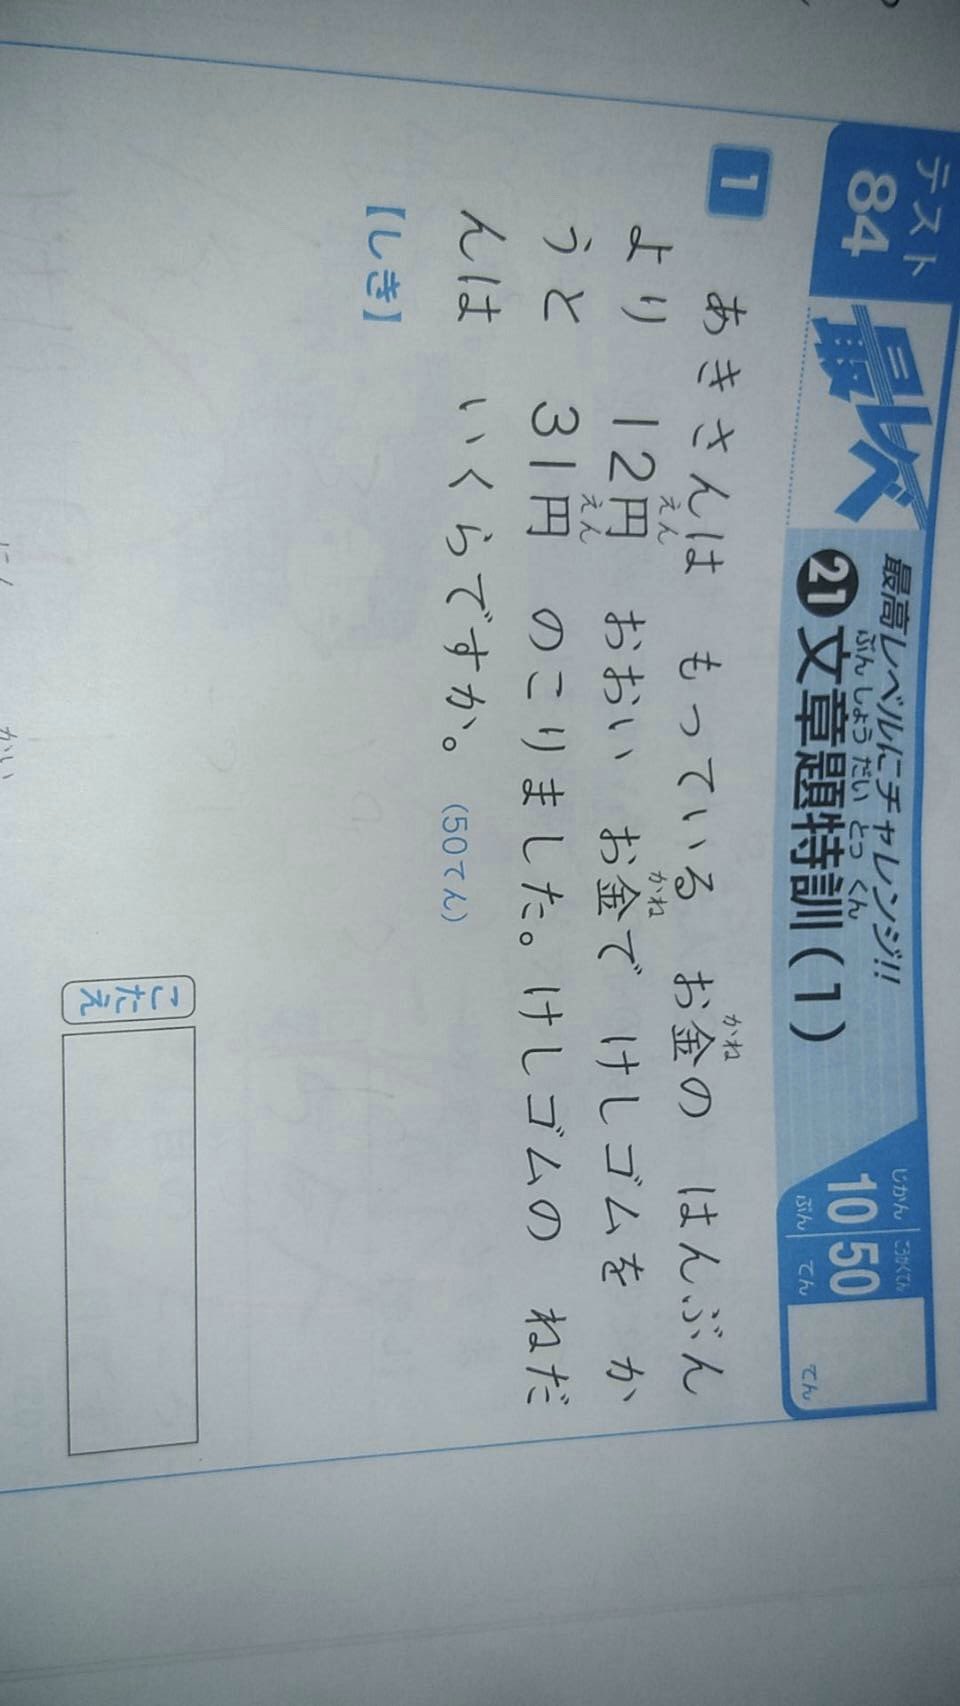 テスト
84
最レベ
最高レベルにチャレンジ!!
21 文章題特訓(1)
ぶんしょうだいとっくん
じかん
10
ぶん
ごうかくてん
50
てん
てん
1
あきさんは もっている お金の はんぶん
かね
より 12円 おおい お金で けしゴムを か
えん かね
うと 31円 のこりました。けしゴムの ねだ
えん
んは いくらですか。 (50てん)
【しき】
こたえ
かい